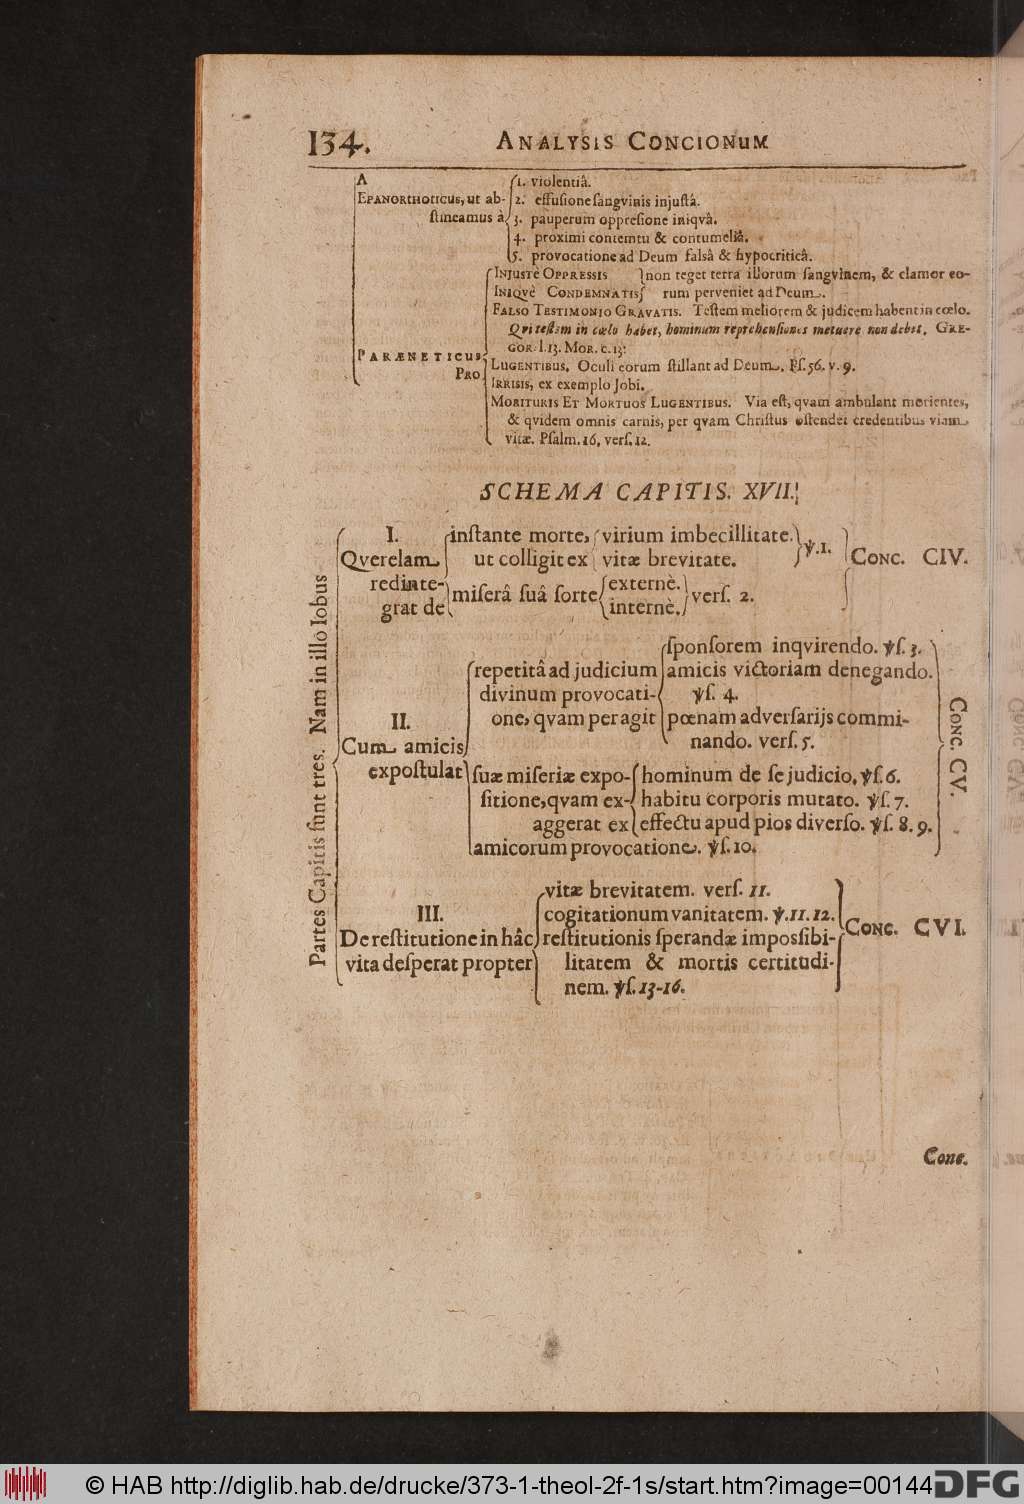 134.
ANALYSIS CONCIONUM
A
EPANORTHOTICUS, ut ab-
ſtineamus à
1. violentiâ.
2. effuſione ſangvinis injuſtâ.
3. pauperum oppreſione iniqvâ.
4. proximi contemtu & contumeliâ.
5. provocatione ad Deum falsâ & hypocriticâ.
PARÆNETICUS
PRO
INJUSTÈ OPPRESSIS
INIQVÈ CONDEMNATIS
non teget terra illorum ſangvinem, & clamor eo-
rum perveniet ad Deum.
FALSO TESTIMONIO GRAVATIS. Teſtem meliorem & judicem habent in cœlo.
Qvi teſtem in cœlo habet, hominum reprehenſiones metuere non debet. GRE-
GOR. l. 13. MOR. c. 13.
LUGENTIBUS. Oculi eorum ſtillant ad Deum. Pſ. 56. v. 9.
IRRISIS, ex exemplo Jobi.
MORITURIS ET MORTUOS LUGENTIBUS. Via eſt, qvam ambulant morientes,
& qvidem omnis carnis, per qvam Chriſtus oſtendet credentibus viam
vitæ. Pſalm. 16, verſ. 12.
SCHEMA CAPITIS. XVII.
Partes Capitis ſunt tres. Nam in illo Iobus
I.
Qverelam
redinte-
grat de
inſtante morte,
ut colligit ex
virium imbecillitate.
vitæ brevitate.
℣. 1.
miſerâ ſuâ ſorte
externè.
internè.
verſ. 2.
CONC. CIV.
II.
Cum amicis
expoſtulat
repetitâ ad judicium
divinum provocati-
one, qvam peragit
ſponſorem inqvirendo. ℣ſ. 3.
amicis victoriam denegando.
℣ſ. 4.
pœnam adverſarijs commi-
nando. verſ. 5.
ſuæ miſeriæ expo-
ſitione, qvam ex-
aggerat ex
hominum de ſe judicio, ℣ſ. 6.
habitu corporis mutato. ℣ſ. 7.
effectu apud pios diverſo. ℣ſ. 8. 9.
amicorum provocatione. ℣ſ. 10.
CONC. CV.
III.
De reſtitutione in hâc
vita deſperat propter
vitæ brevitatem. verſ. 11.
cogitationum vanitatem. ℣. 11. 12.
reſtitutionis ſperandæ imposſibi-
litatem & mortis certitudi-
nem. ℣ſ. 13-16.
CONC. CVI.
Conc.
© HAB http://diglib.hab.de/drucke/373-1-theol-2f-1s/start.htm?image=00144
DFG